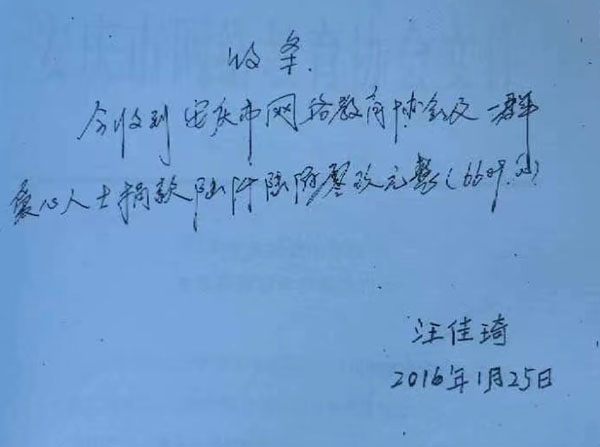 收条.
今收到安庆市网络教育协会及一群
爱心人士捐款陆仟陆佰零玖元整(6609.00)
汪佳琦
2016年1月25日